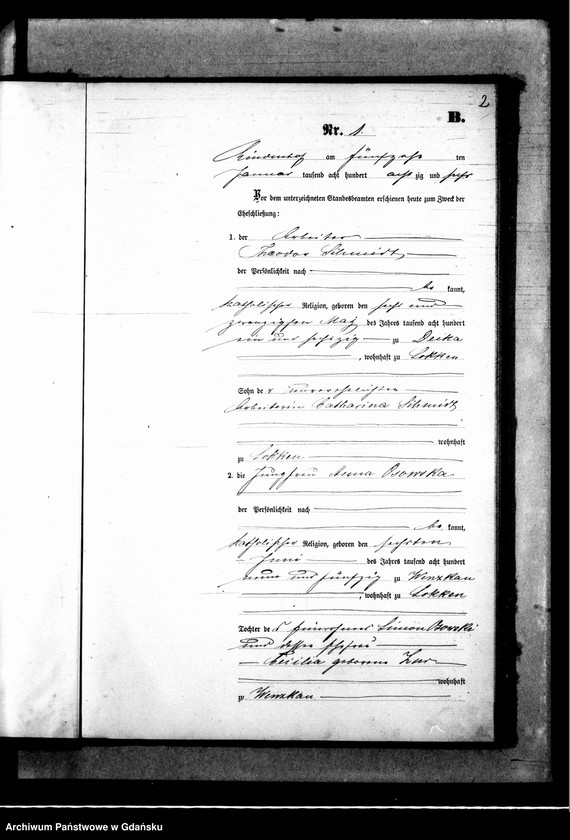 2
B.
Nr. 1.
am fünfzehn ten
Januar tausend acht hundert achtzig und sechs
Vor dem unterzeichneten Standesbeamten erschienen heute zum Zweck der
Eheschließung:
1. der Arbeiter
Theodor Schmidt
der Persönlichkeit nach
be kannt,
katholischer Religion, geboren den sechs und
zwanzigsten Mai des Jahres tausend acht hundert
ein und sechszig zu Deika
, wohnhaft zu Lokken
Sohn der unverehelichten
Arbeiterin Catharina Schmidt
wohnhaft
zu Lokken
2. die Jungfrau Anna Osowska
der Persönlichkeit nach
be kannt,
katholischer Religion, geboren den sechsten
Juni des Jahres tausend acht hundert
neun und fünfzig zu Wenzkau
, wohnhaft zu Lokken
Tochter des Simon Osowski
und dessen Ehefrau
Cecilia geborene
wohnhaft
zu Wenzkau
Archiwum Państwowe w Gdańsku